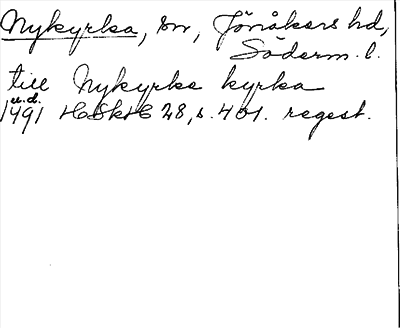 Nykyrka, sn, Jönåkers hd,
Söderm. l.
till Nykyrke kyrka
u.d.
1491 HSkH 28, s. 401. regest.